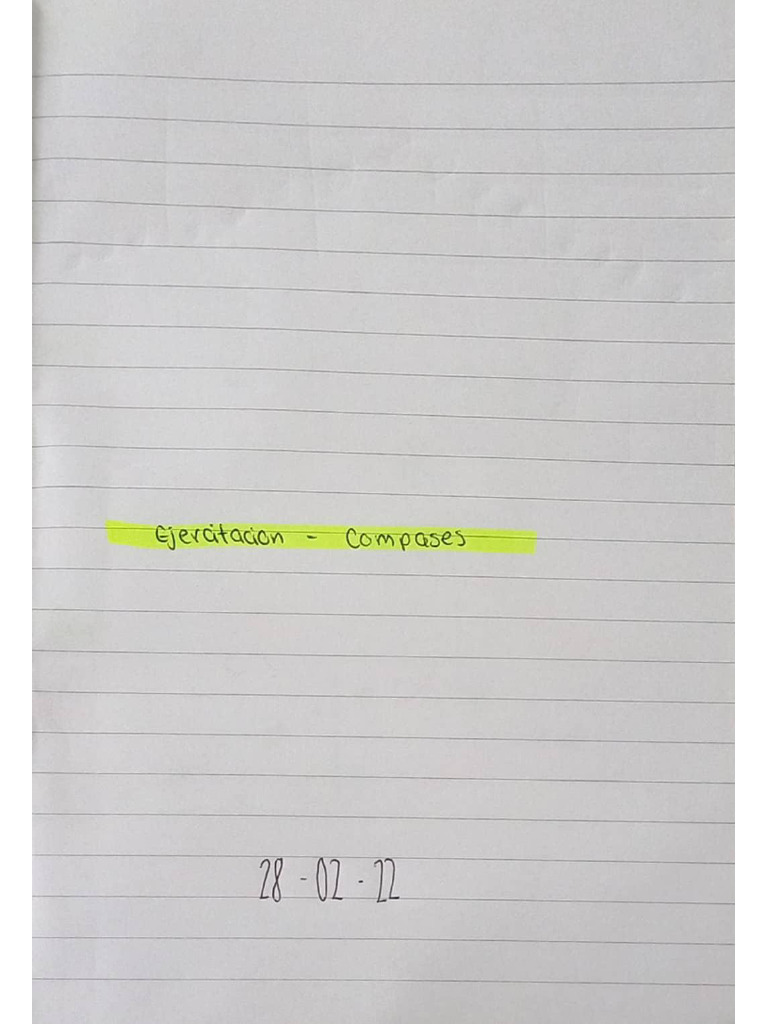 Ejercitacion - Compases
28 - 02 - 22